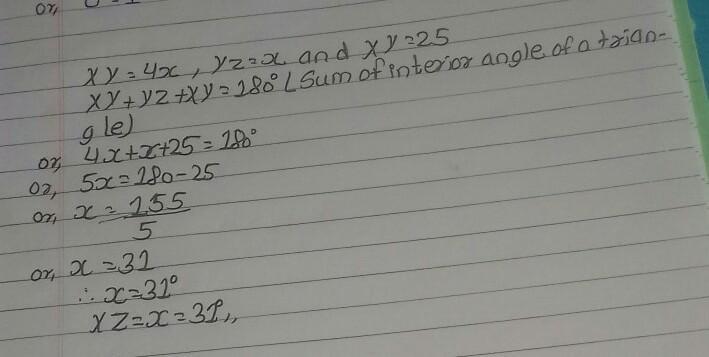 or,
XY = 4x, YZ = x and XY = 25
XY + YZ + XY = 180° (Sum of interior angle of a trian-
gle)
or, 4x + x + 25 = 180°
or, 5x = 180 - 25
or, x = 155/5
or, x = 31
∴ x = 31°
XZ = x = 31°,,